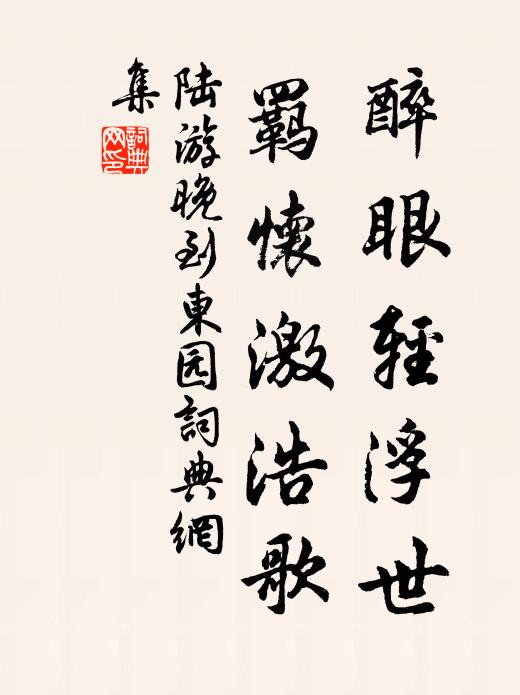 醉眼輕浮世
羈懷激浩歌
陆游晚到東园詞典網
集
詞典
网印